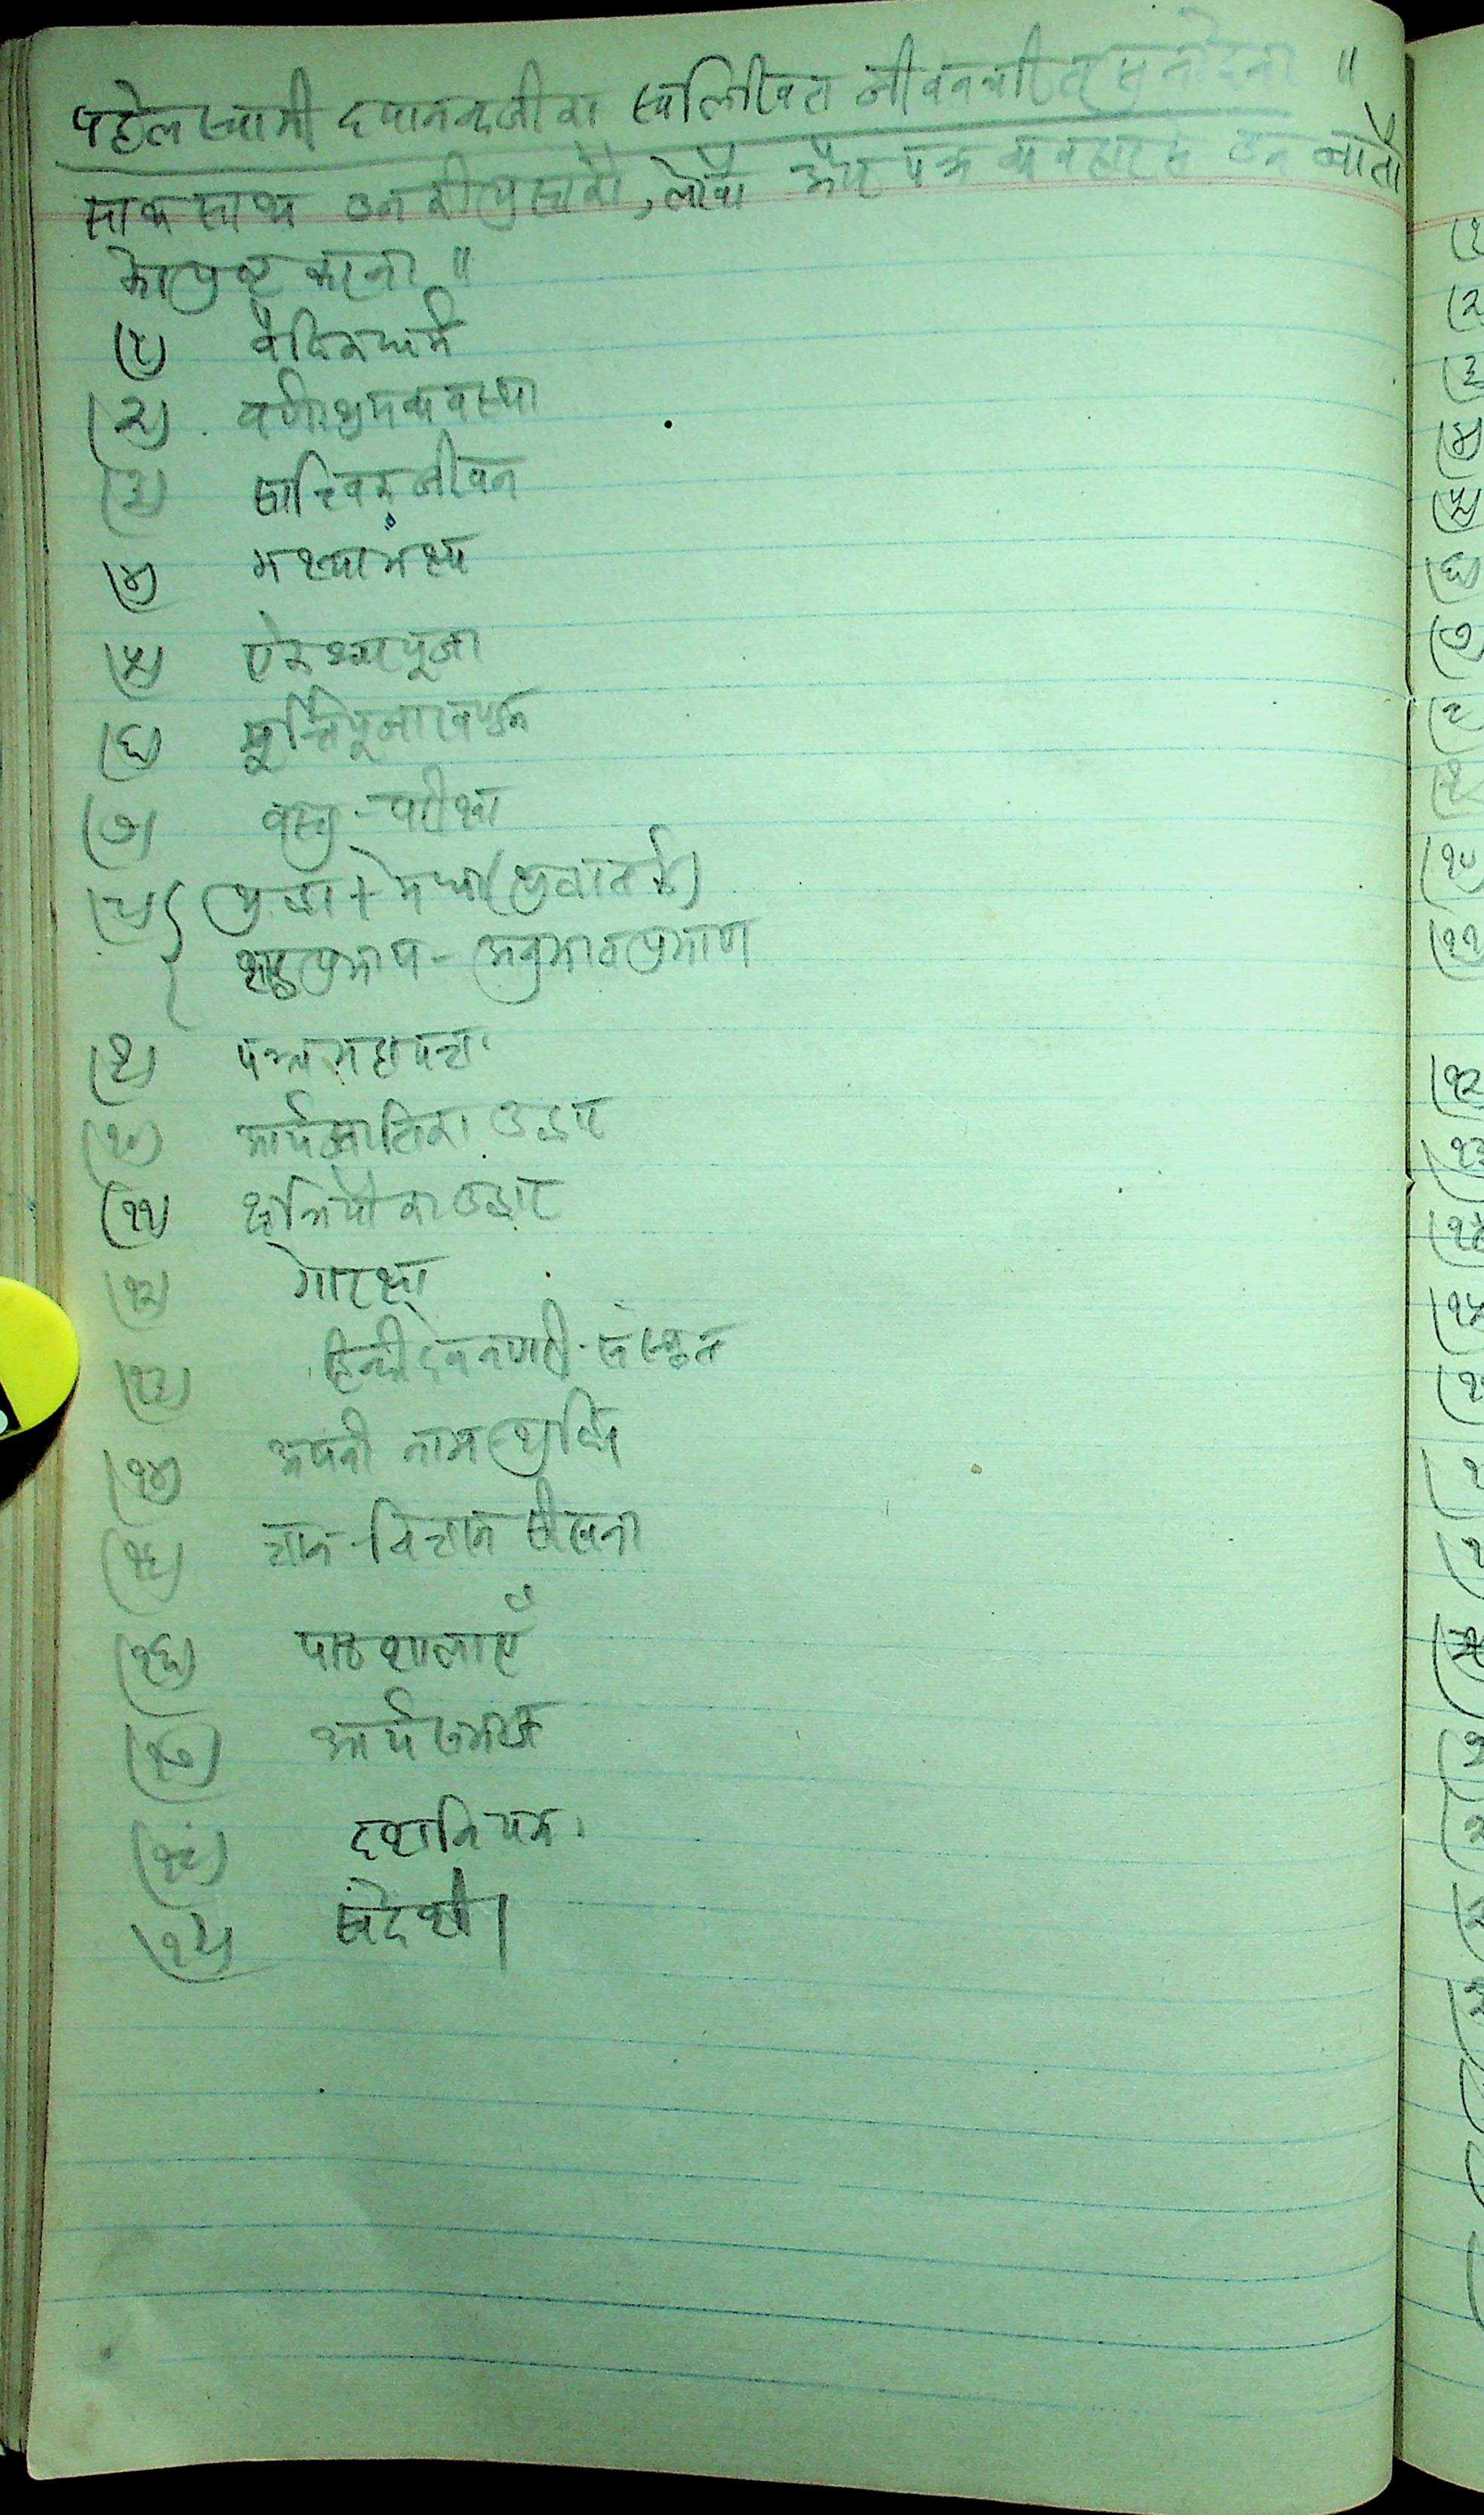 पहले स्वामी दयानन्दजीका स्वलिखित जीवनचरित्र सुना देना ॥
साथ साथ उनकी पुस्तकों, लेखों और पत्र व्यवहारसे उन बातों
को पुष्ट करना ॥
(१) वैदिकधर्म
(२) वर्णाश्रमव्यवस्था
(३) सात्त्विक जीवन
(४) भक्ष्याभक्ष्य
(५) ऐकेश्वरपूजा
(६) मूर्त्तिपूजाखण्डन
(७) वस्तु-परीक्षा
(८) श्रद्धा + मेधा (श्रद्धातर्क)
शब्दप्रमाण - अनुमानप्रमाण
(९) पञ्चमहायज्ञ
(१०) आर्यजातिका उद्धार
(११) क्षत्रियोंका उद्धार
(१२) गोरक्षा
(१३) हिन्दी देवनागरी-संस्कृत
(१४) अपनी नाम शुद्धि
(१५) ज्ञान-विज्ञान सीखना
(१६) पाठशालाएँ
(१७) आर्यसमाज
(१८) दशनियम
(१९) स्वदेशी।
(१
(२
(३
(४
(५
(६
(७
(१०
(११
(१२
(१३
(१४
(१५